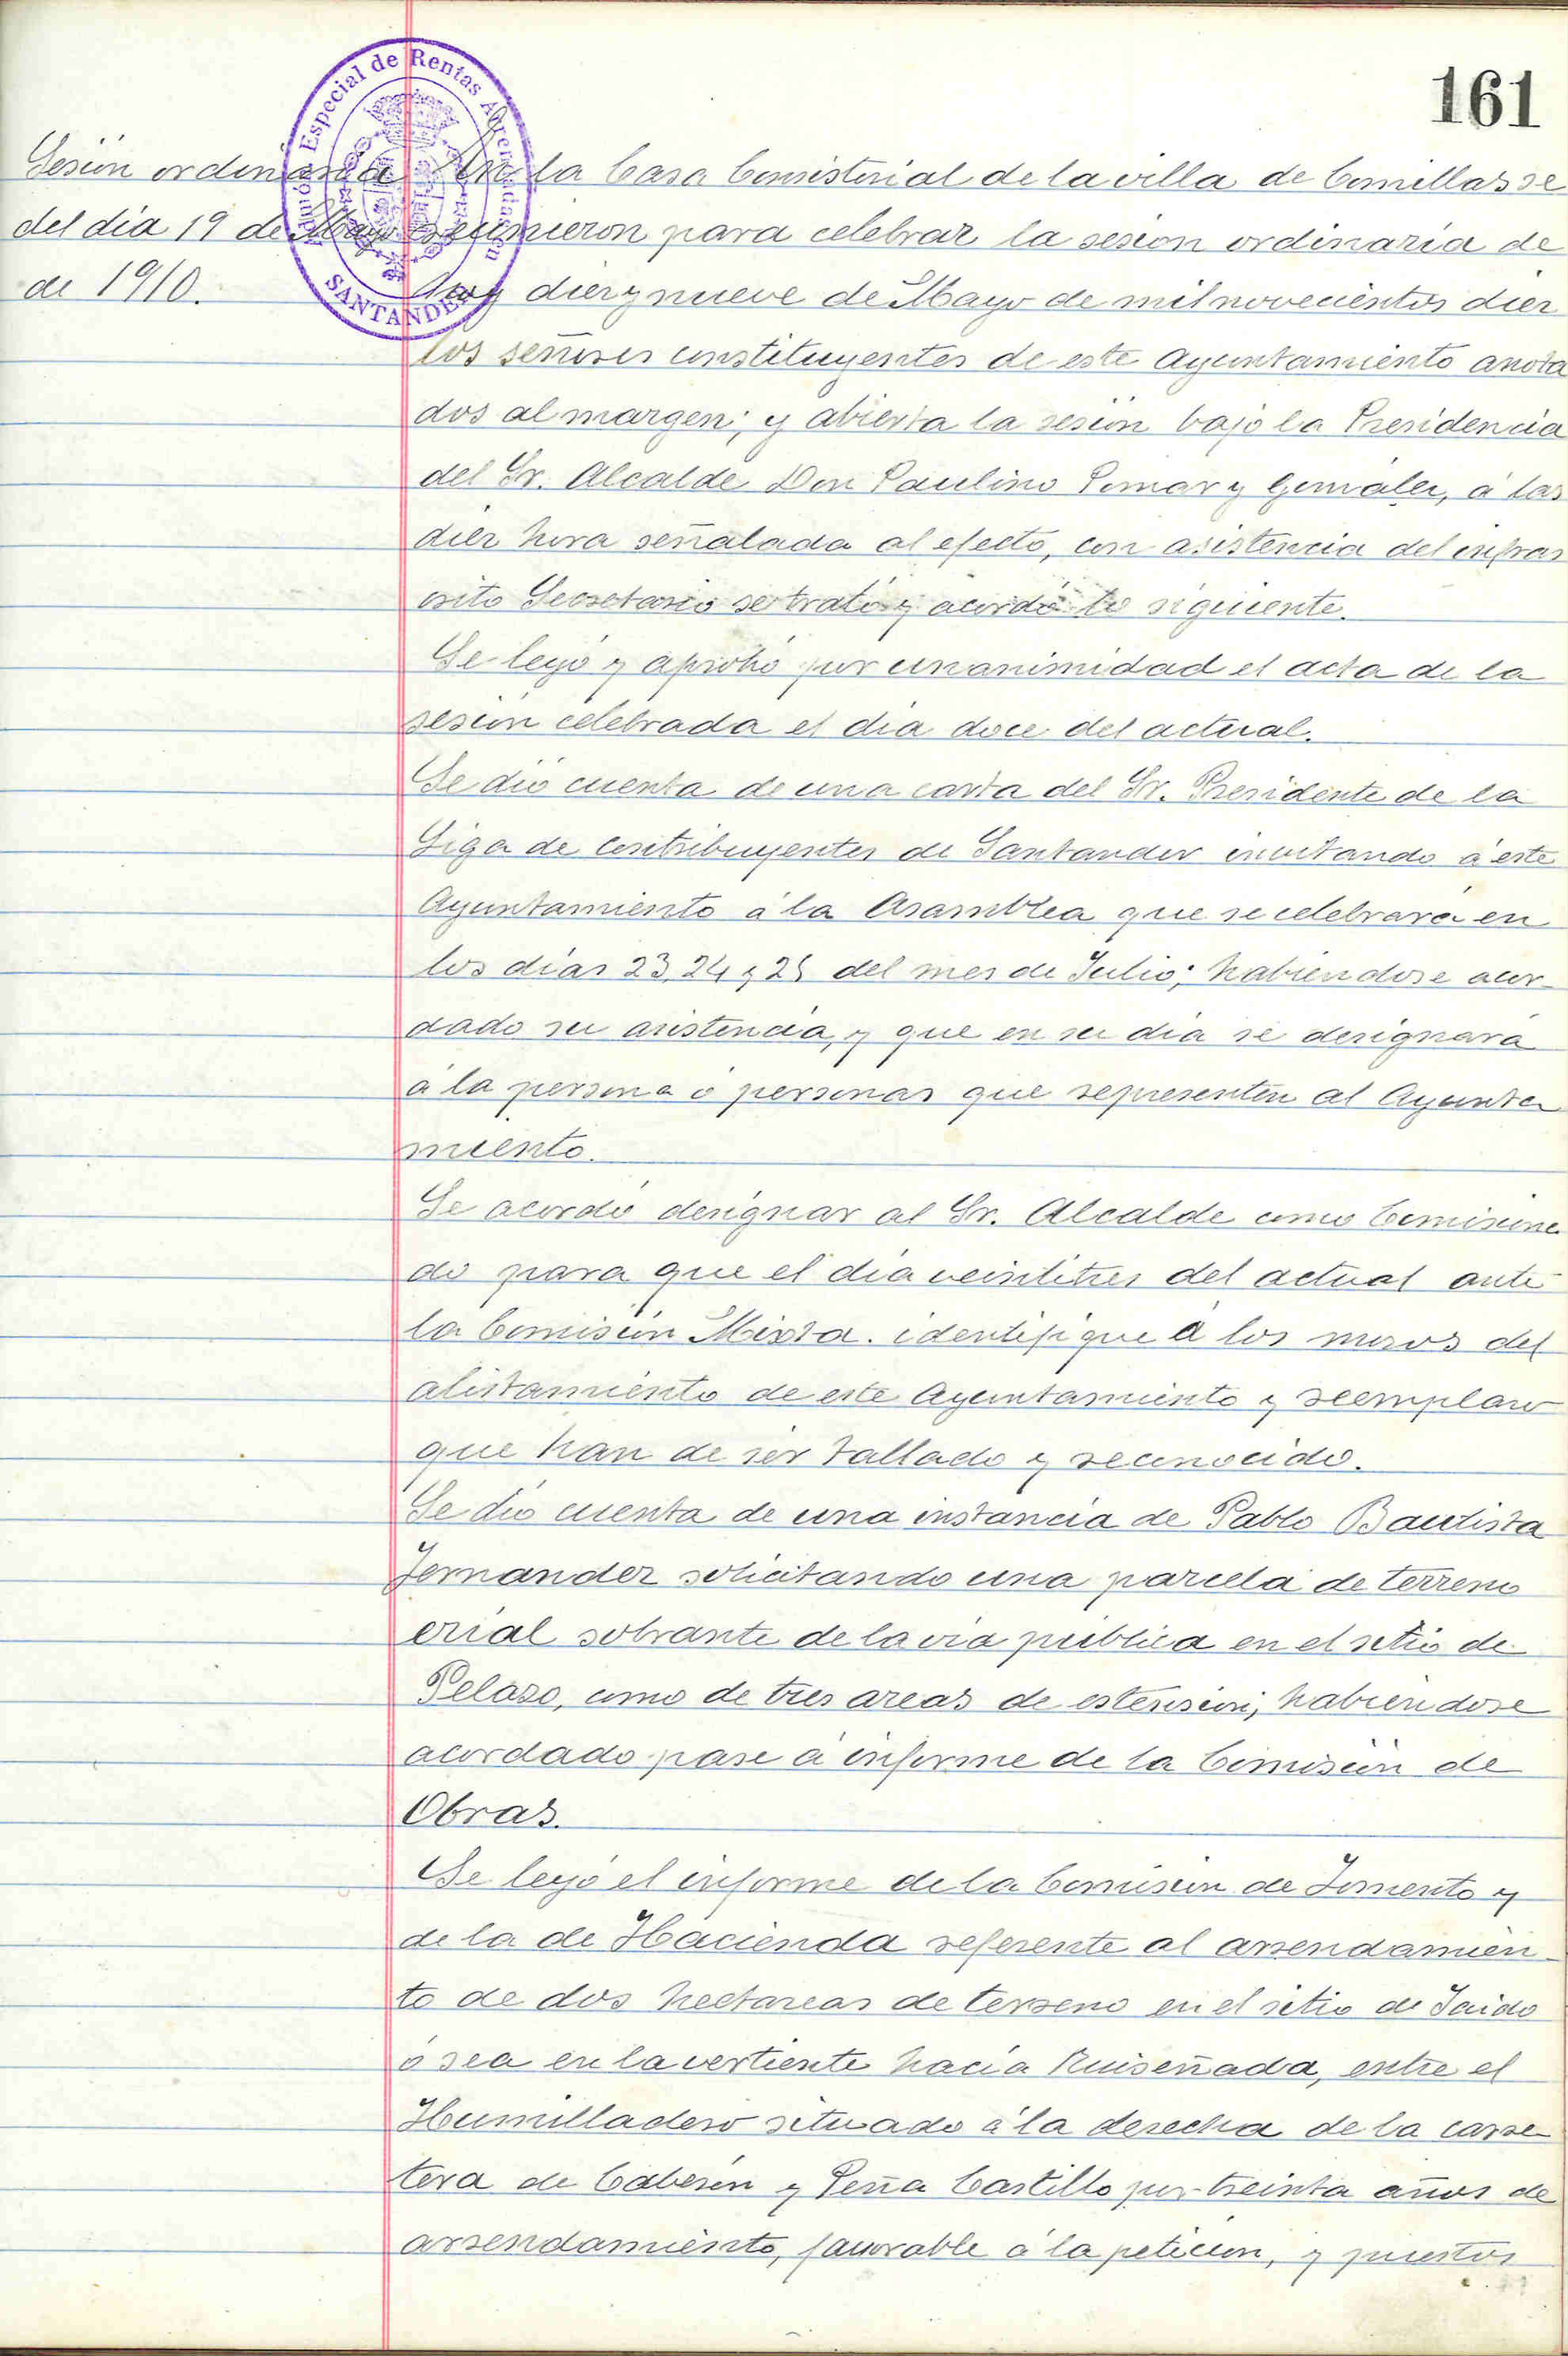 161
Admón Especial de Rentas Arrendadas en
SANTANDER
Sesión ordinaria
del dia 19 de Mayo
de 1910.
En la Casa Consistorial de la villa de Comillas se
reunieron para celebrar la sesion ordinaria de
hoy diez y nueve de Mayo de mil novecientos diez
los señores constituyentes de este Ayuntamiento anota
dos al margen; y abierta la sesion bajo la Presidencia
del Sr. Alcalde Don Paulino Pomar y Gonzalez, á las
diez hora señalada al efecto, con asistencia del infras
crito Secretario se trató y acordó lo siguiente.
Se leyó y aprobó por unanimidad el acta de la
sesion celebrada el dia doce del actual.
Se dió cuenta de una carta del Sr. Presidente de la
Liga de contribuyentes de Santander invitando á este
Ayuntamiento á la Asamblea que se celebrará en
los dias 23, 24 y 25 del mes de Julio; habiendose acor-
dado su asistencia, y que en su dia se designará
á la persona ó personas que representen al Ayunta
miento.
Se acordó designar al Sr. Alcalde como Comisiona
do para que el dia veintitres del actual ante
la Comisión Mixta. identifique á los mozos del
alistamiento de este Ayuntamiento y reemplazo
que han de ser tallado y reconocido.
Se dió cuenta de una instancia de Pablo Bautista
Fernandez solicitando una parcela de terreno
erial sobrante de la via pública en el sitio de
Pelazo, como de tres areas de estension; habiendose
acordado pase á informe de la Comisión de
Obras.
Se leyó el informe de la Comision de Fomento y
de la de Hacienda referente al arrendamien-
to de dos hectareas de terreno en el sitio de Jaido
ó sea en la vertiente hacia Ruiseñada, entre el
Humilladero situado á la derecha de la carre-
tera de Cabezon y Peña Castillo por treinta años de
arrendamiento, favorable á la peticion, y puestos